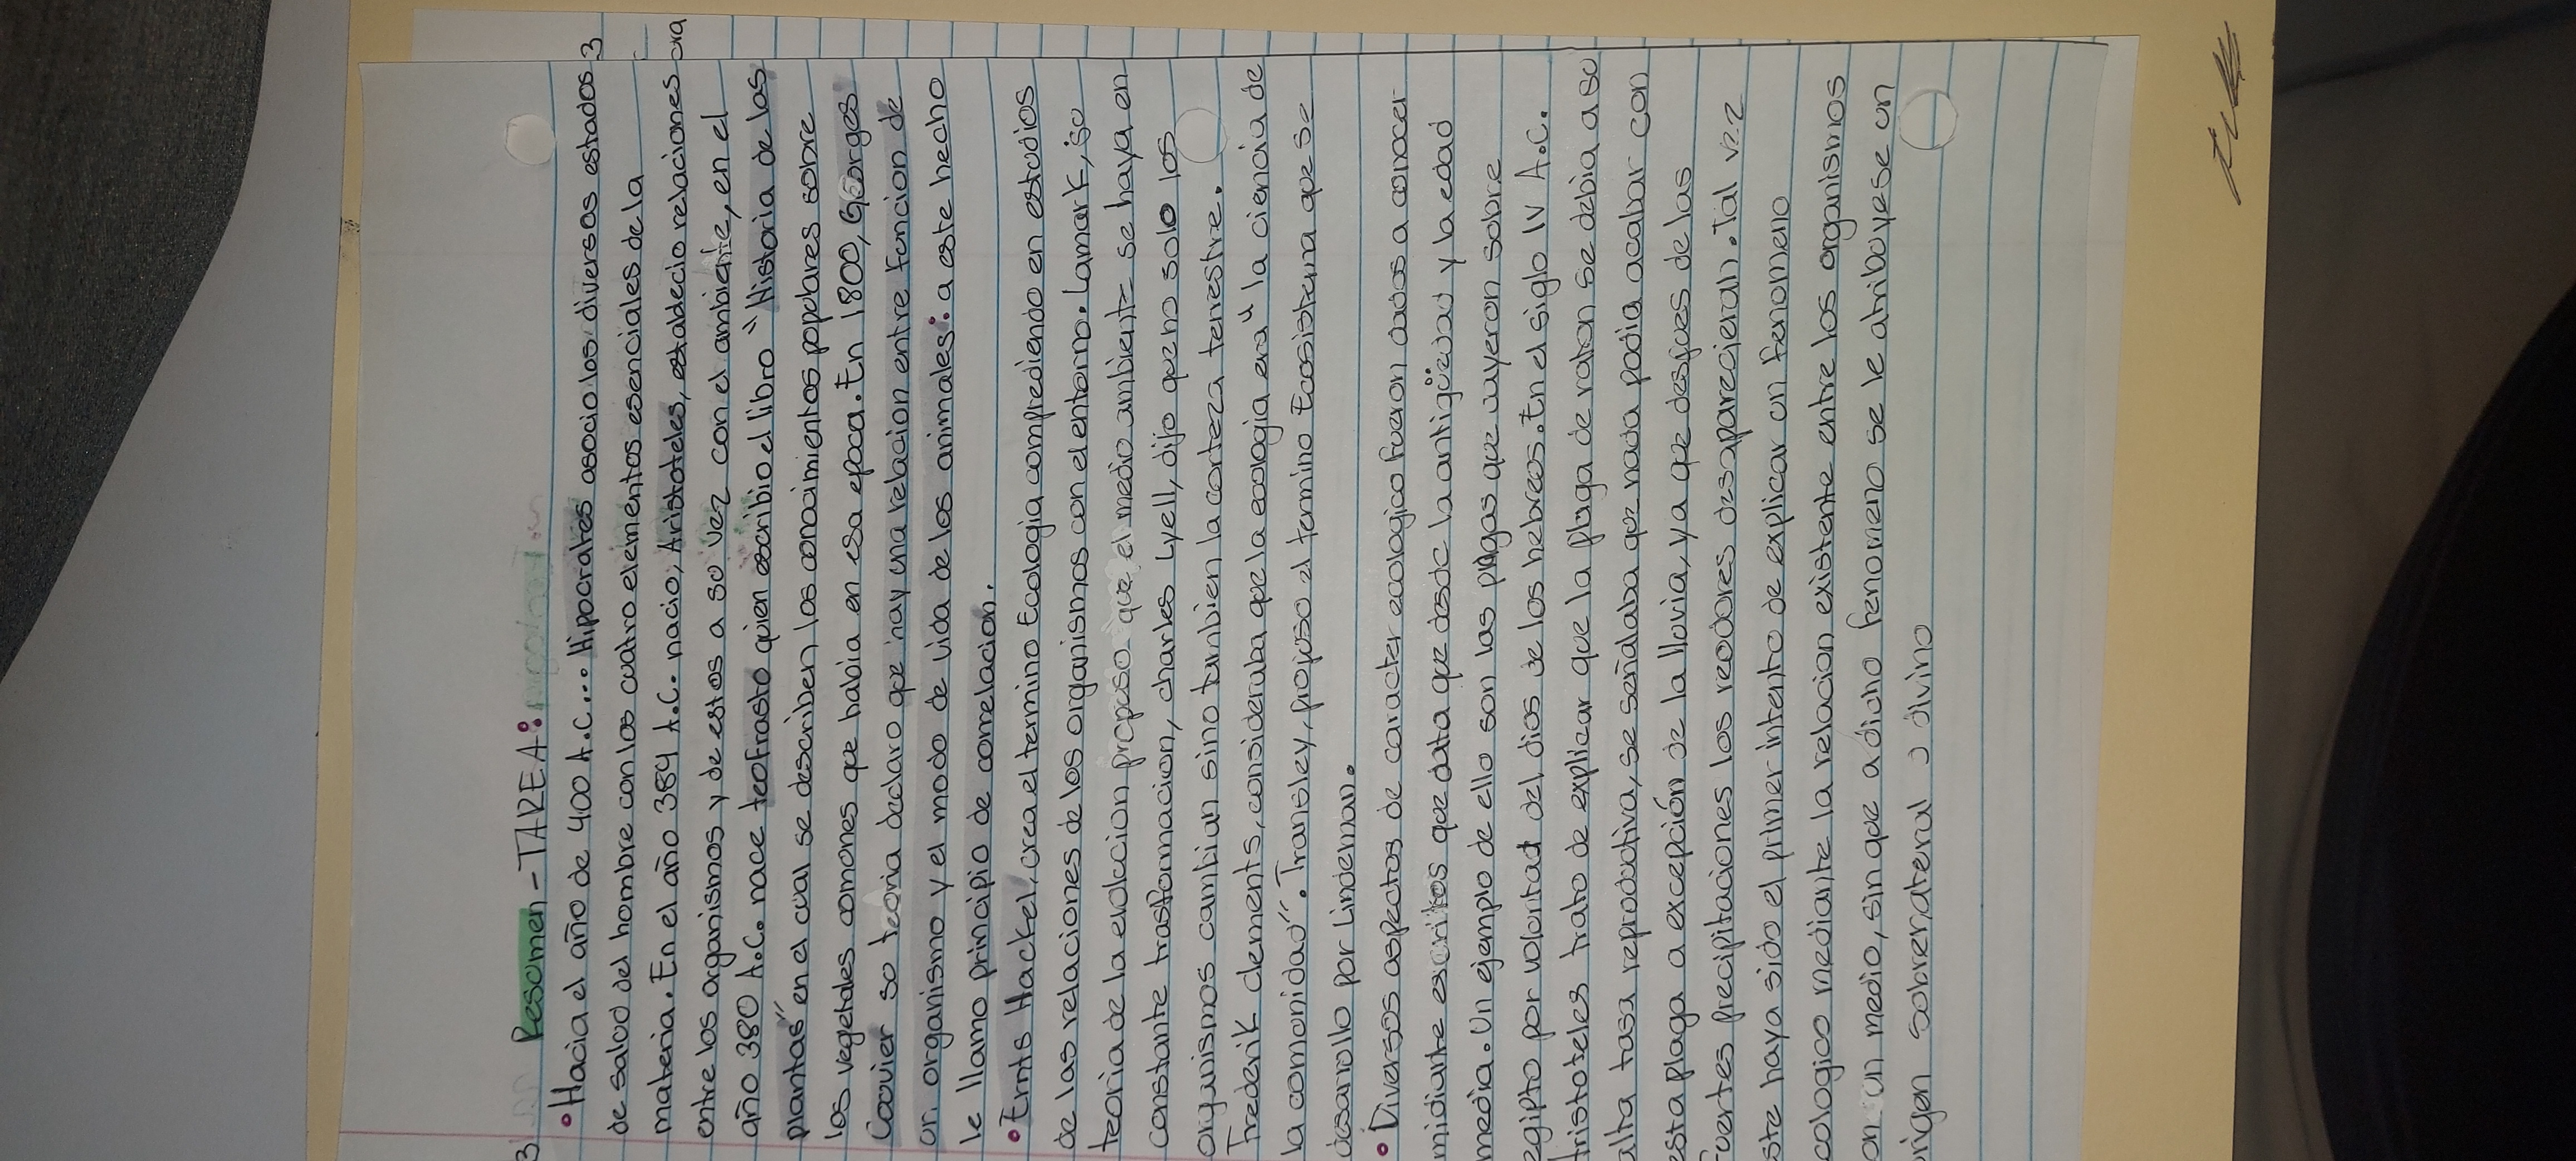 3 Resumen - TAREA:
• Hacia el año de 400 A.C... Hipocrates asocio los diversos estados 3
de salud del hombre con los cuatro elementos esenciales de la
materia. En el año 384 A.C. nacio, Aristoteles, establecio relaciones
entre los organismos y de estos a su vez con el ambiente, en el
año 380 A.C. nace teofrasto quien escribio el libro "Historia de las
plantas" en el cual se describen los conocimientos populares sobre
los vegetales comunes que habia en esa epoca. En 1800, Georges
Couvier su teoria declaro que hay una relacion entre funcion de
un organismo y el modo de vida de los animales: a este hecho
le llamo principio de correlacion.
• Ernts Hackel, crea el termino Ecologia comprediendo en estudios
de las relaciones de los organismos con el entorno. Lamark, su
teoria de la evolucion propuso que el medio ambiente se haya en
constante trasformacion, charles Lyell, dijo que no solo los
organismos cambian sino tambien la corteza terrestre.
Frederik clements, consideraba que la ecologia era "la ciencia de
la comunidad". Transley, propuso el termino Ecosistema que se
desarrollo por Lindeman.
• Diversos aspectos de caracter ecologico fueron dados a conocer
midiante escritos que data que desde la antigüedad y la edad
media. Un ejemplo de ello son las plagas que cayeron sobre
egipto por voluntad del dios de los hebreos. En el siglo IV A.C.
Aristoteles trato de explicar que la plaga de raton se debia a su
alta tasa reproductiva, se señalaba que nada podia acabar con
esta plaga a excepción de la lluvia, ya que despues de las
fuertes precipitaciones los reodores desaparecieran. Tal vez
este haya sido el primer intento de explicar un fenomeno
ecologico mediante la relacion existente entre los organismos
con un medio, sin que a dicho fenomeno se le atribuyese un
origen sobrenatural o divino